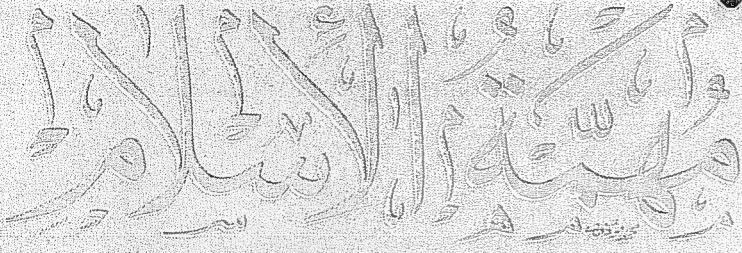 مهمة الإسلام